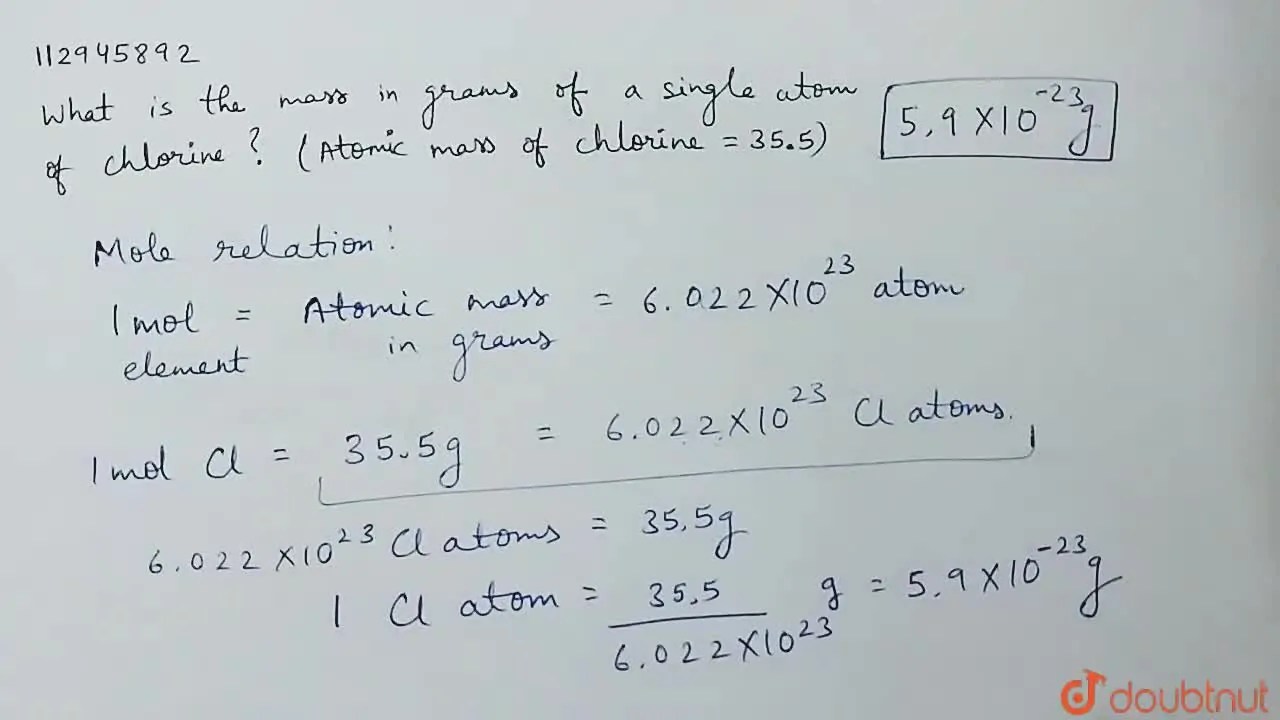 112945892
What is the mass in grams of a single atom
of chlorine? (Atomic mass of chlorine = 35.5)
5.9 X 10⁻²³g
Mole relation:
1 mol = Atomic mass = 6.022 X 10²³ atom
element in grams
1 mol Cl = 35.5g = 6.022 X 10²³ Cl atoms.
6.022 X 10²³ Cl atoms = 35.5g
1 Cl atom = 35.5 g = 5.9 X 10⁻²³g
6.022 X 10²³
doubtnut